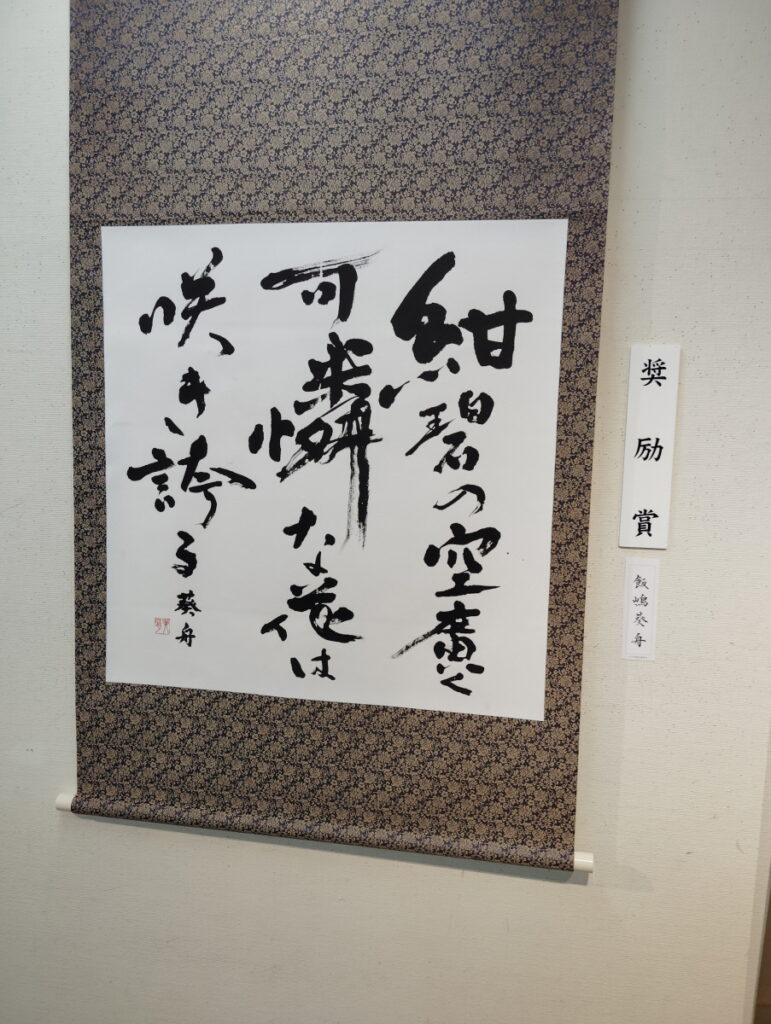 紺碧の空廣く
可憐な花は
咲き誇る
葵舟
奨励賞
飯嶋葵舟